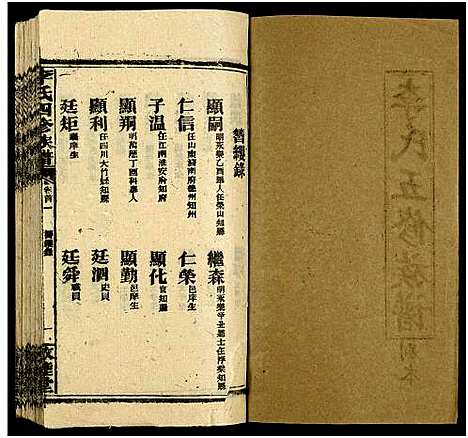 李氏五修族譜
簪纓錄
顯嗣 明永樂乙酉舉人任
繼森 明永樂辛丑進士任浮梁知縣
仁信 任山東濟南府德州知州
仁榮 邑庠生
子溫 任江南淮安府知府
顯化 官知縣
顯朔 明萬歷丁酉科舉人
顯勤 邑庠生
顯利 任四川大竹縣知縣
廷泗 吏員
廷矩 邑庠生
廷舜 職員
李氏四修族譜 卷首一 簪纓錄